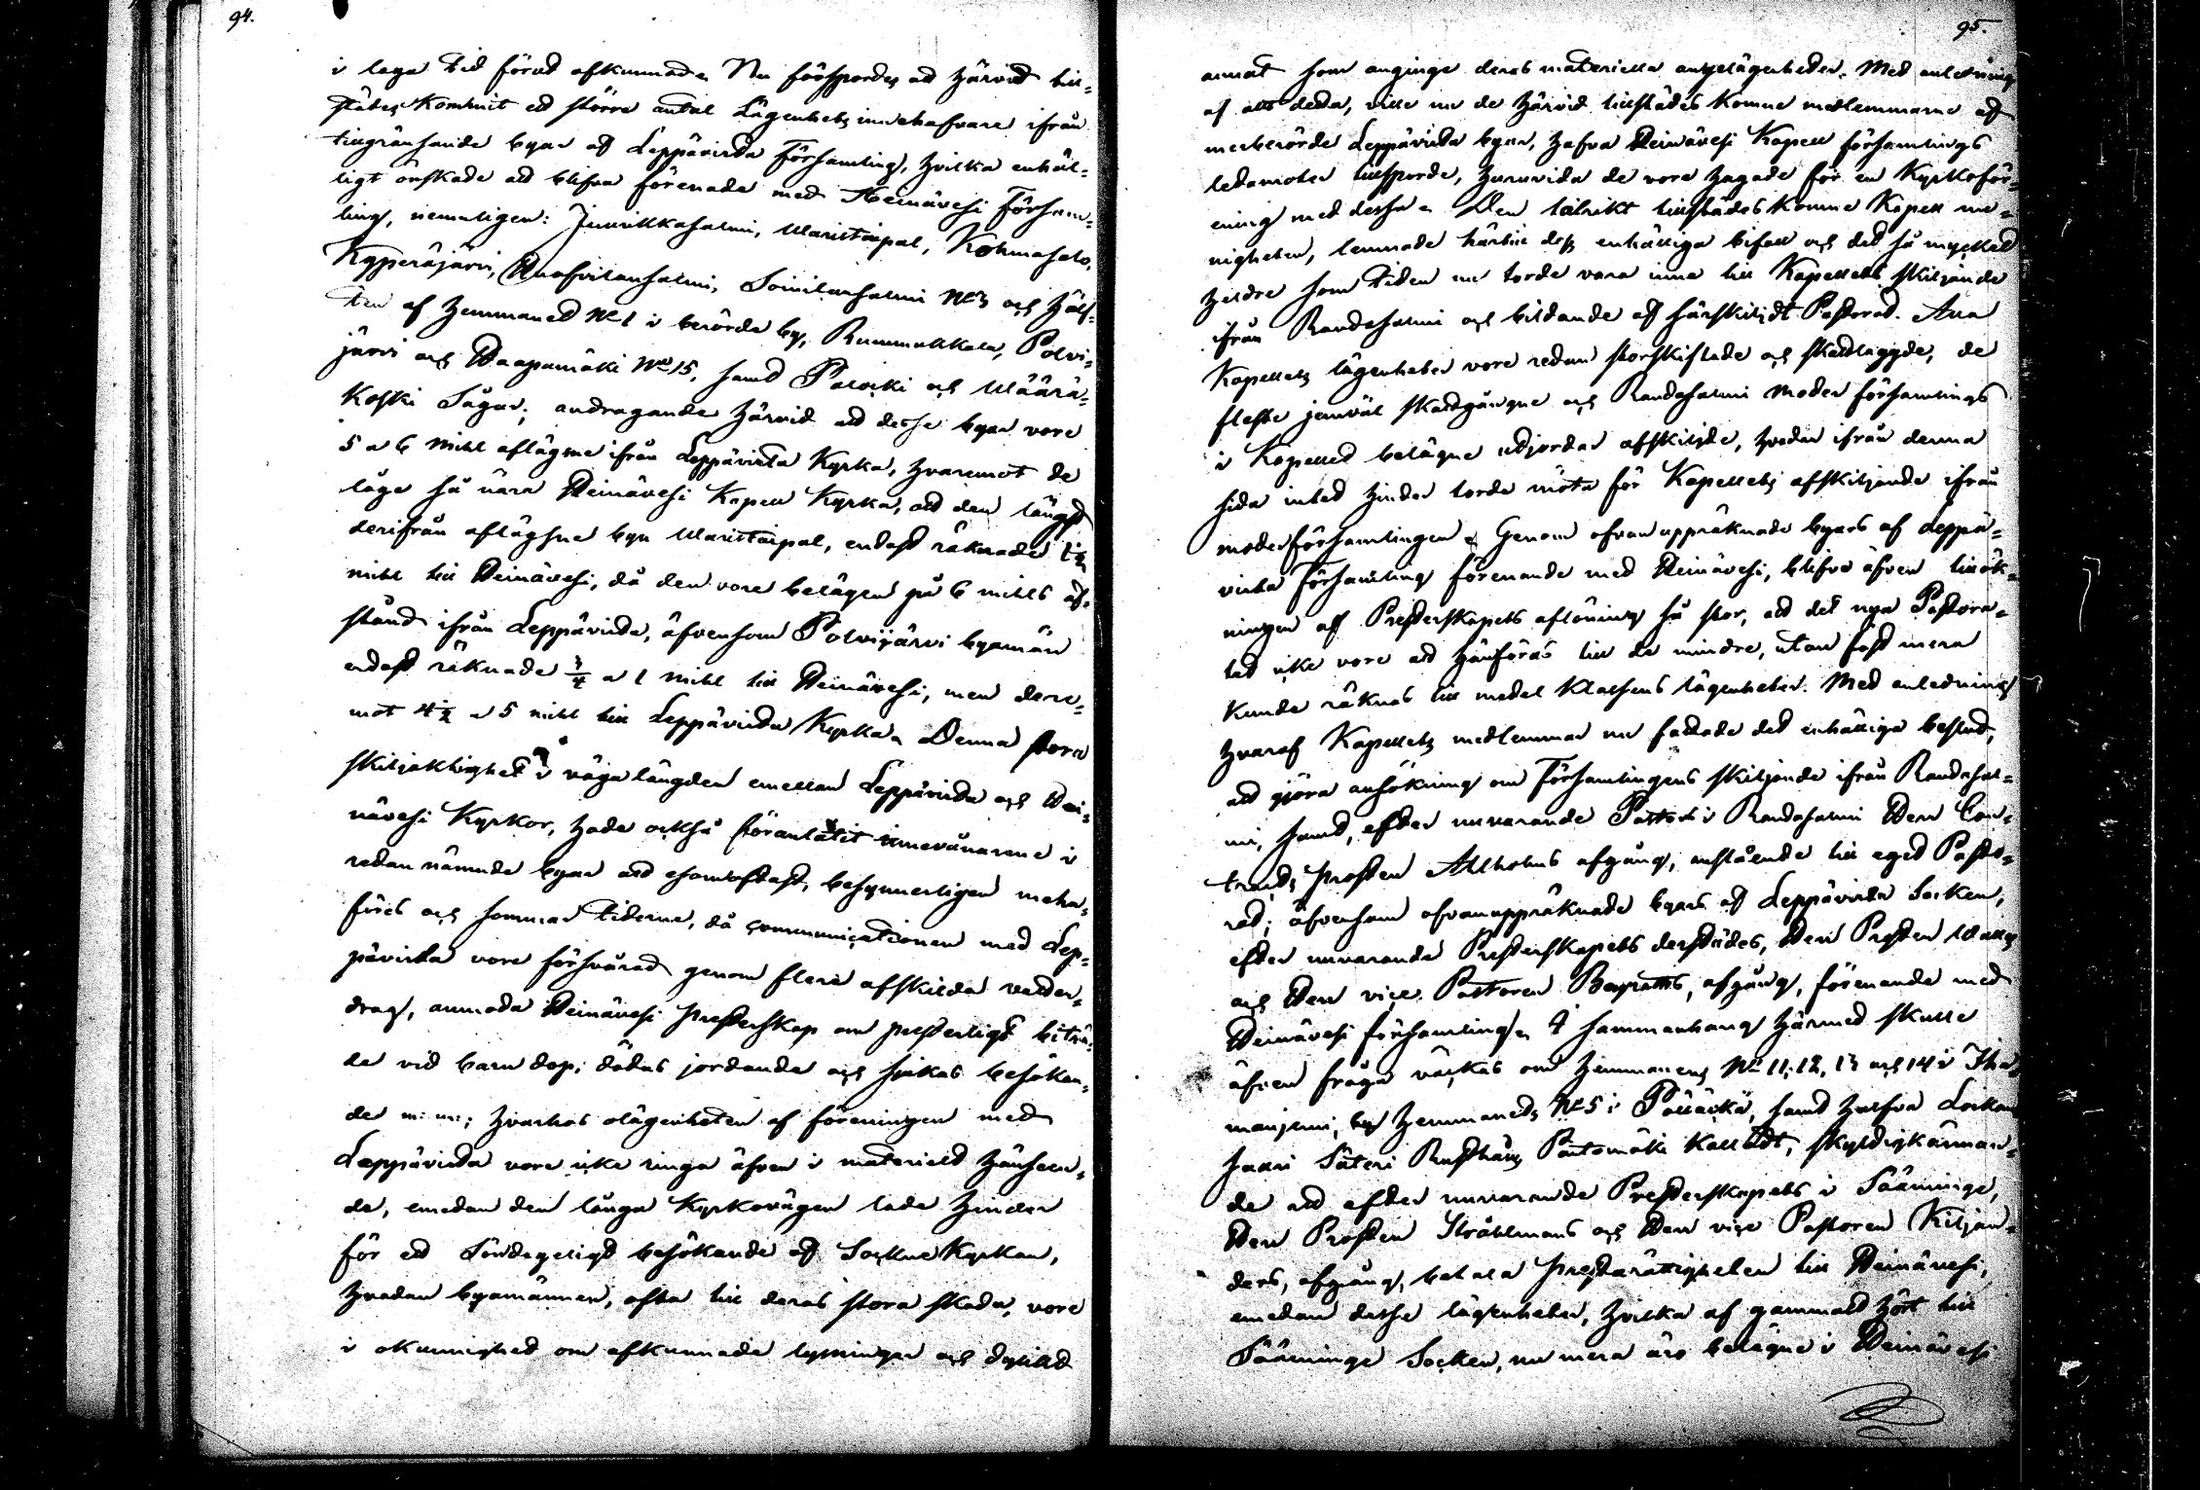 94.
i laga tid förut afkunnad. Nu förspordes att härvid till-
städes kommit ett större antal Lägenhets innehafvare ifrån
tillgränsande byar af Leppävirta Församling, hvilka enhäl-
ligt önskade att blifva förenade med Heinävesi Försam-
ling, nemligen: Juurikkasalmi, Waristaipal, Kohmasalo,
Kyperäjärvi, Ruofvilansalmi, Soinilansalmi No 3 och hälf-
ten af hemmanet No 1 i berörde by, Rummukkala, Polvi-
järvi och Haapamäki No 15, samt Palvicki och Wäärä-
koski Sågar; andragande härvid att desse byar vore
5 a 6 mihl aflägsne ifrån Leppävirta Kyrka, hvaremot de
låge så nära Heinävesi Kapell Kyrka, att den längst
derifrån aflägsne byn Waristaipal, endast räknade 1½
mihl till Heinävesi, då den vore belägen på 6 mihls af-
stånd ifrån Leppävirta, äfvensom Polvijärvi byamän
endast räknade ¾ a 1 mihl till Heinävesi, men dere-
mot 4½ a 5 mihl till Leppävirta Kyrka. Denna stora
skiljaktighet i väga längden emellan Leppävirta och Hei-
nävesi Kyrkor, hade också föranlåtit innevånarene i
redan nämnde byar att esomoftast, besynnerligen mena-
förs och sommar tiderne, då communicationen med Lep-
pävirta vore försvårad genom flera afskilda vatten-
drag, anmoda Heinävesi Presterskap om presterligt biträ-
de vid barn dop, dödas jordande och sjukas besökan-
de m: m:; hvarhos olägenheten af föreningen med
Leppävirta vore icke ringa äfven i materielt hänseen-
de, emedan den långa Kyrkovägen lade hinder
för ett Söndageligt besökande af Sockne Kyrkan,
hvadan byamännen, ofta till deras stora skada, vore
i okunnighet om afkunnade lysningar och dylikt
95.
annat som anginge deras materiella angelägenheder. Med anledning
af allt detta, ville nu de härvid tillstädes komne medlemmarne af
merberörde Leppävirta byar, hafva Heinävesi Kapell församlings
ledamoter tillsporde, huruvida de vore hugade för en Kyrkoför-
ening med dessa. Den talrikt tillstädes komne Kapell me-
nigheten, lemnade härtill dess enhälliga bifall och det så mycket
heldre som tiden nu torde vara inne till Kapellets skiljande
ifrån Randasalmi och bildande af särskildt Pastorat. Alla
Kapellets lägenheter vore redan storskiftade och skattlaggde, de
fleste jemväl skattgångne och Randasalmi Moder församlings
i Kapellet belägne utjordar afskiljde, hvadan ifrån denna
sida intet hinder torde möta för Kapellets afskiljande ifrån
moderförsamlingen. Genom ofvanuppräknade byars af Leppä-
virta Församling förenande med Heinävesi, blifve äfven tillök-
ningen af Presterskapets aflöning så stor, att det nya Pastora-
tet icke vore att hänföras till de mindre, utan fast mera
kunde räknas till medel Klassens lägenheter. Med anledning
hvaraf Kapellets medlemmar nu fattade det enhälliga beslut,
att göra ansökning om Församlingens skiljande ifrån Randasal-
mi, samt, efter nuvarande Pastors i Randasalmi Herr Con-
trакts Prosten Alholms afgång, anstående till eget Pasto-
rat; äfvensom ofvanuppräknade byars af Leppävirta Socken,
efter nuvarande Presterskapets derstädes, Herr Prosten
och Herr vice Pastoren afgång, förenande med
Heinävesi församling. I sammanhang härmed skulle
äfven fråga väckas om hemmanens No 11, 12, 13 och 14 i
by hemmanets No 5 i samt halfva
Säteri Rusthåll Pautomäki kalladt, skyldigkännan-
de att efter nuvarande Presterskapets i Sääminge,
Herr Prosten Ståhlmans och Herr vice Pastoren Kiljan-
ders, afgång, betala Presträttigheten till Heinävesi,
emedan desse lägenheter, hvilka af gammalt hört till
Sääminge Socken, nu mera äro belägne i Heinävesi